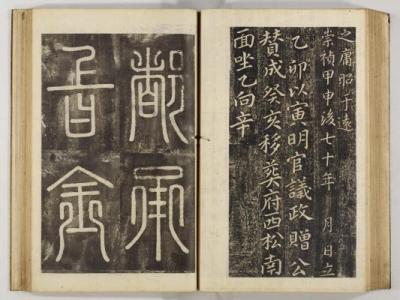 之庸昭于遠
崇禎甲申後七十年 月 日立
乙卯以寅明官議政贈公
贊成癸亥移葬府西松南
面坐乙向辛
都承
旨金